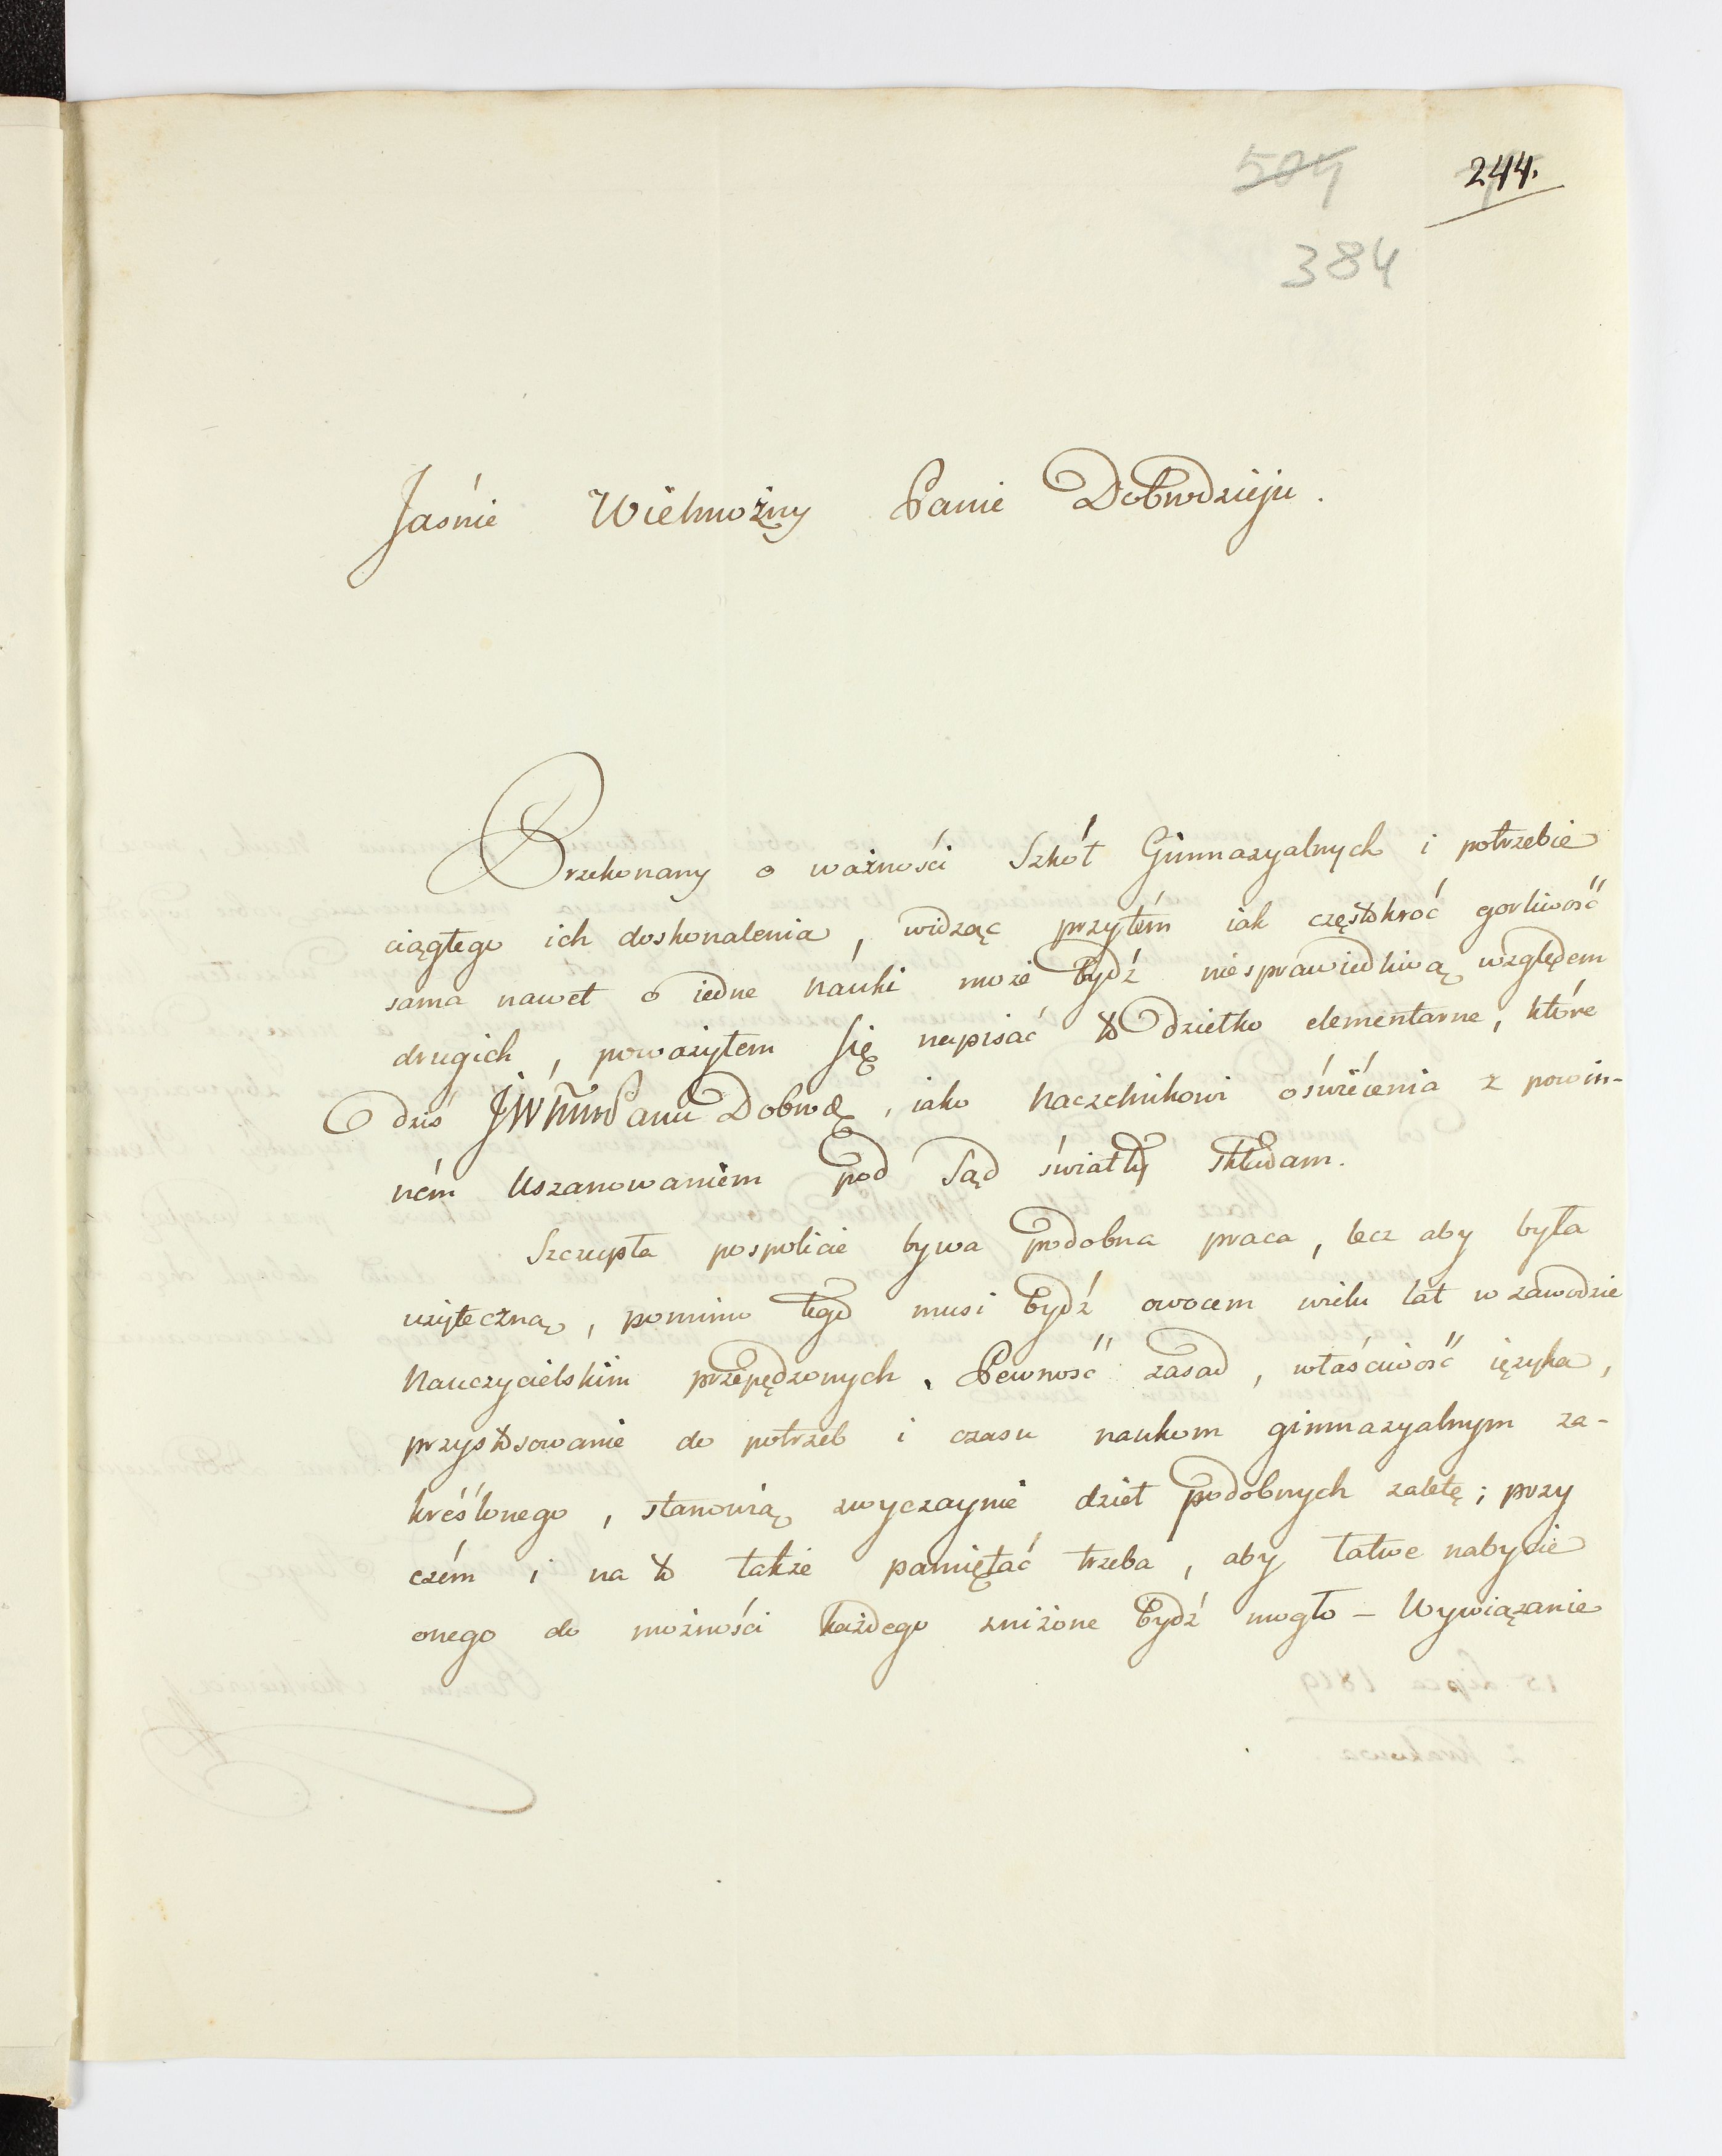 504
244.
384
Jaśnie Wielmożny Panie Dobrodzieju.
Przekonany o ważności Szkół Gimnazyalnych i potrzebie
ciągłego ich doskonalenia, widząc przytém iak częstokroć gorliwość
sama nawet o iedne nauki może bydź niesprawiedliwą względem
drugich, poważyłem się napisać to dziełko elementarne, które
dziś Panu Dobrod., iako Naczelnikowi oświécenia z powin-
ném uszanowaniem pod Sąd światły składam.
Szczupła pospolicie bywa podobna praca, lecz aby była
użyteczną, pomimo tego musi bydź owocem wielu lat w zawodzie
Nauczycielskim przepędzonych. Pewność zasad, właściwość ięzyka,
przystosowanie do potrzeb i czasu naukom gimnazyalnym za-
kréślonego, stanowią zwyczaynie dzieł podobnych zaletę; przy
czém i na to także pamiętać trzeba, aby łatwe nabycie
onego do możności każdego zniżone bydź mogło – Wywiązanie